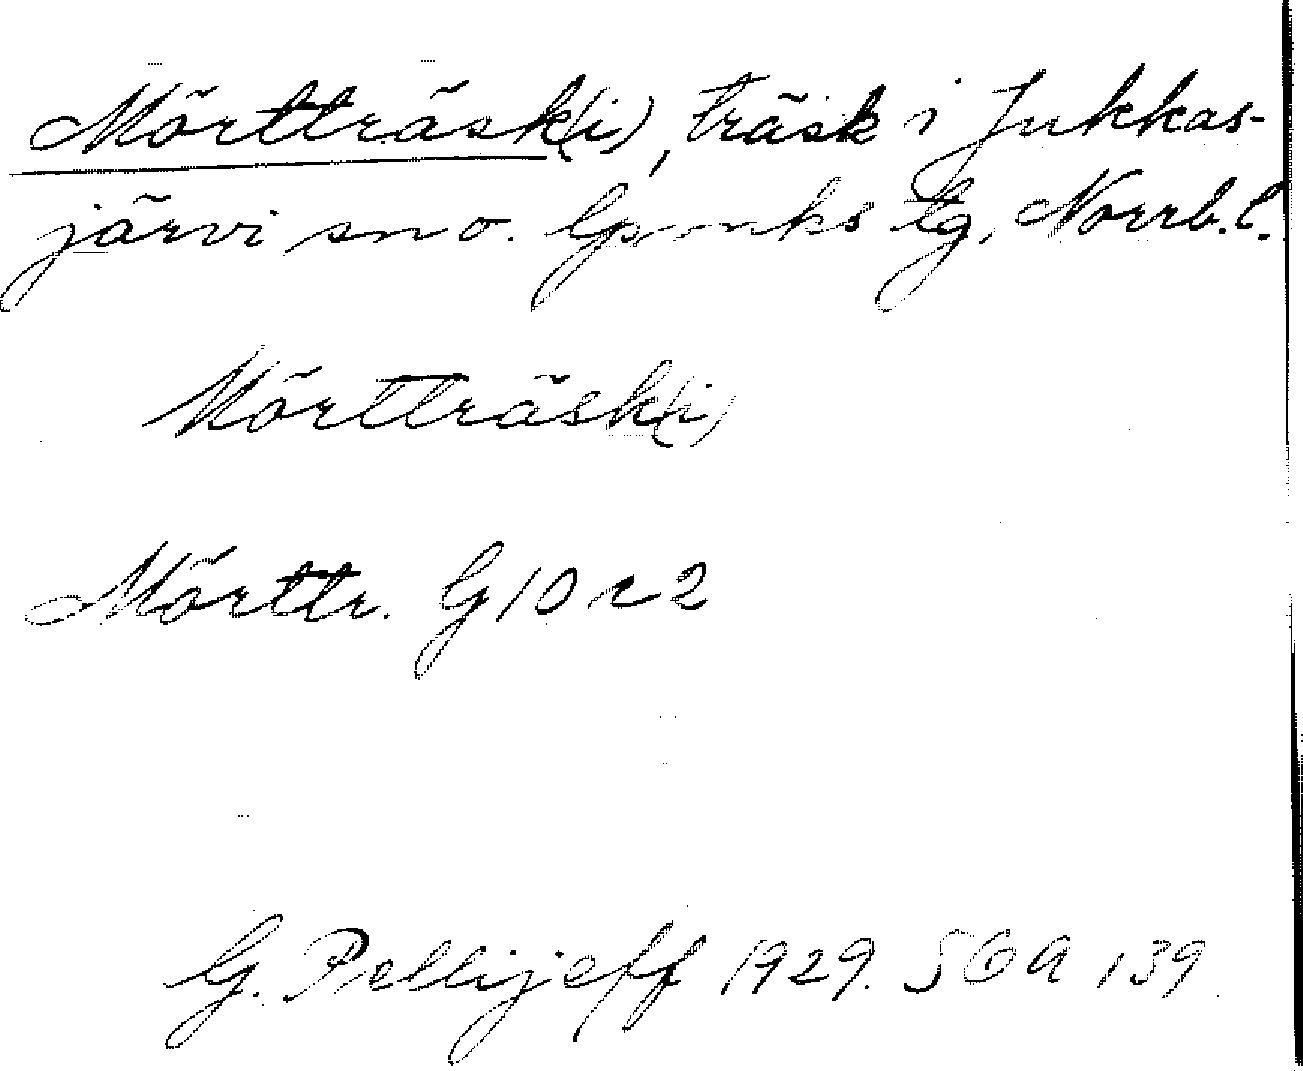 Mörtträsk(i), träsk i Jukkas-
järvi sn o. lpmks tg, Norrb. l.
Mörtträsk(i)
Mörttr. G 10 r 2
G. Pellijeff 1929. SOA 139